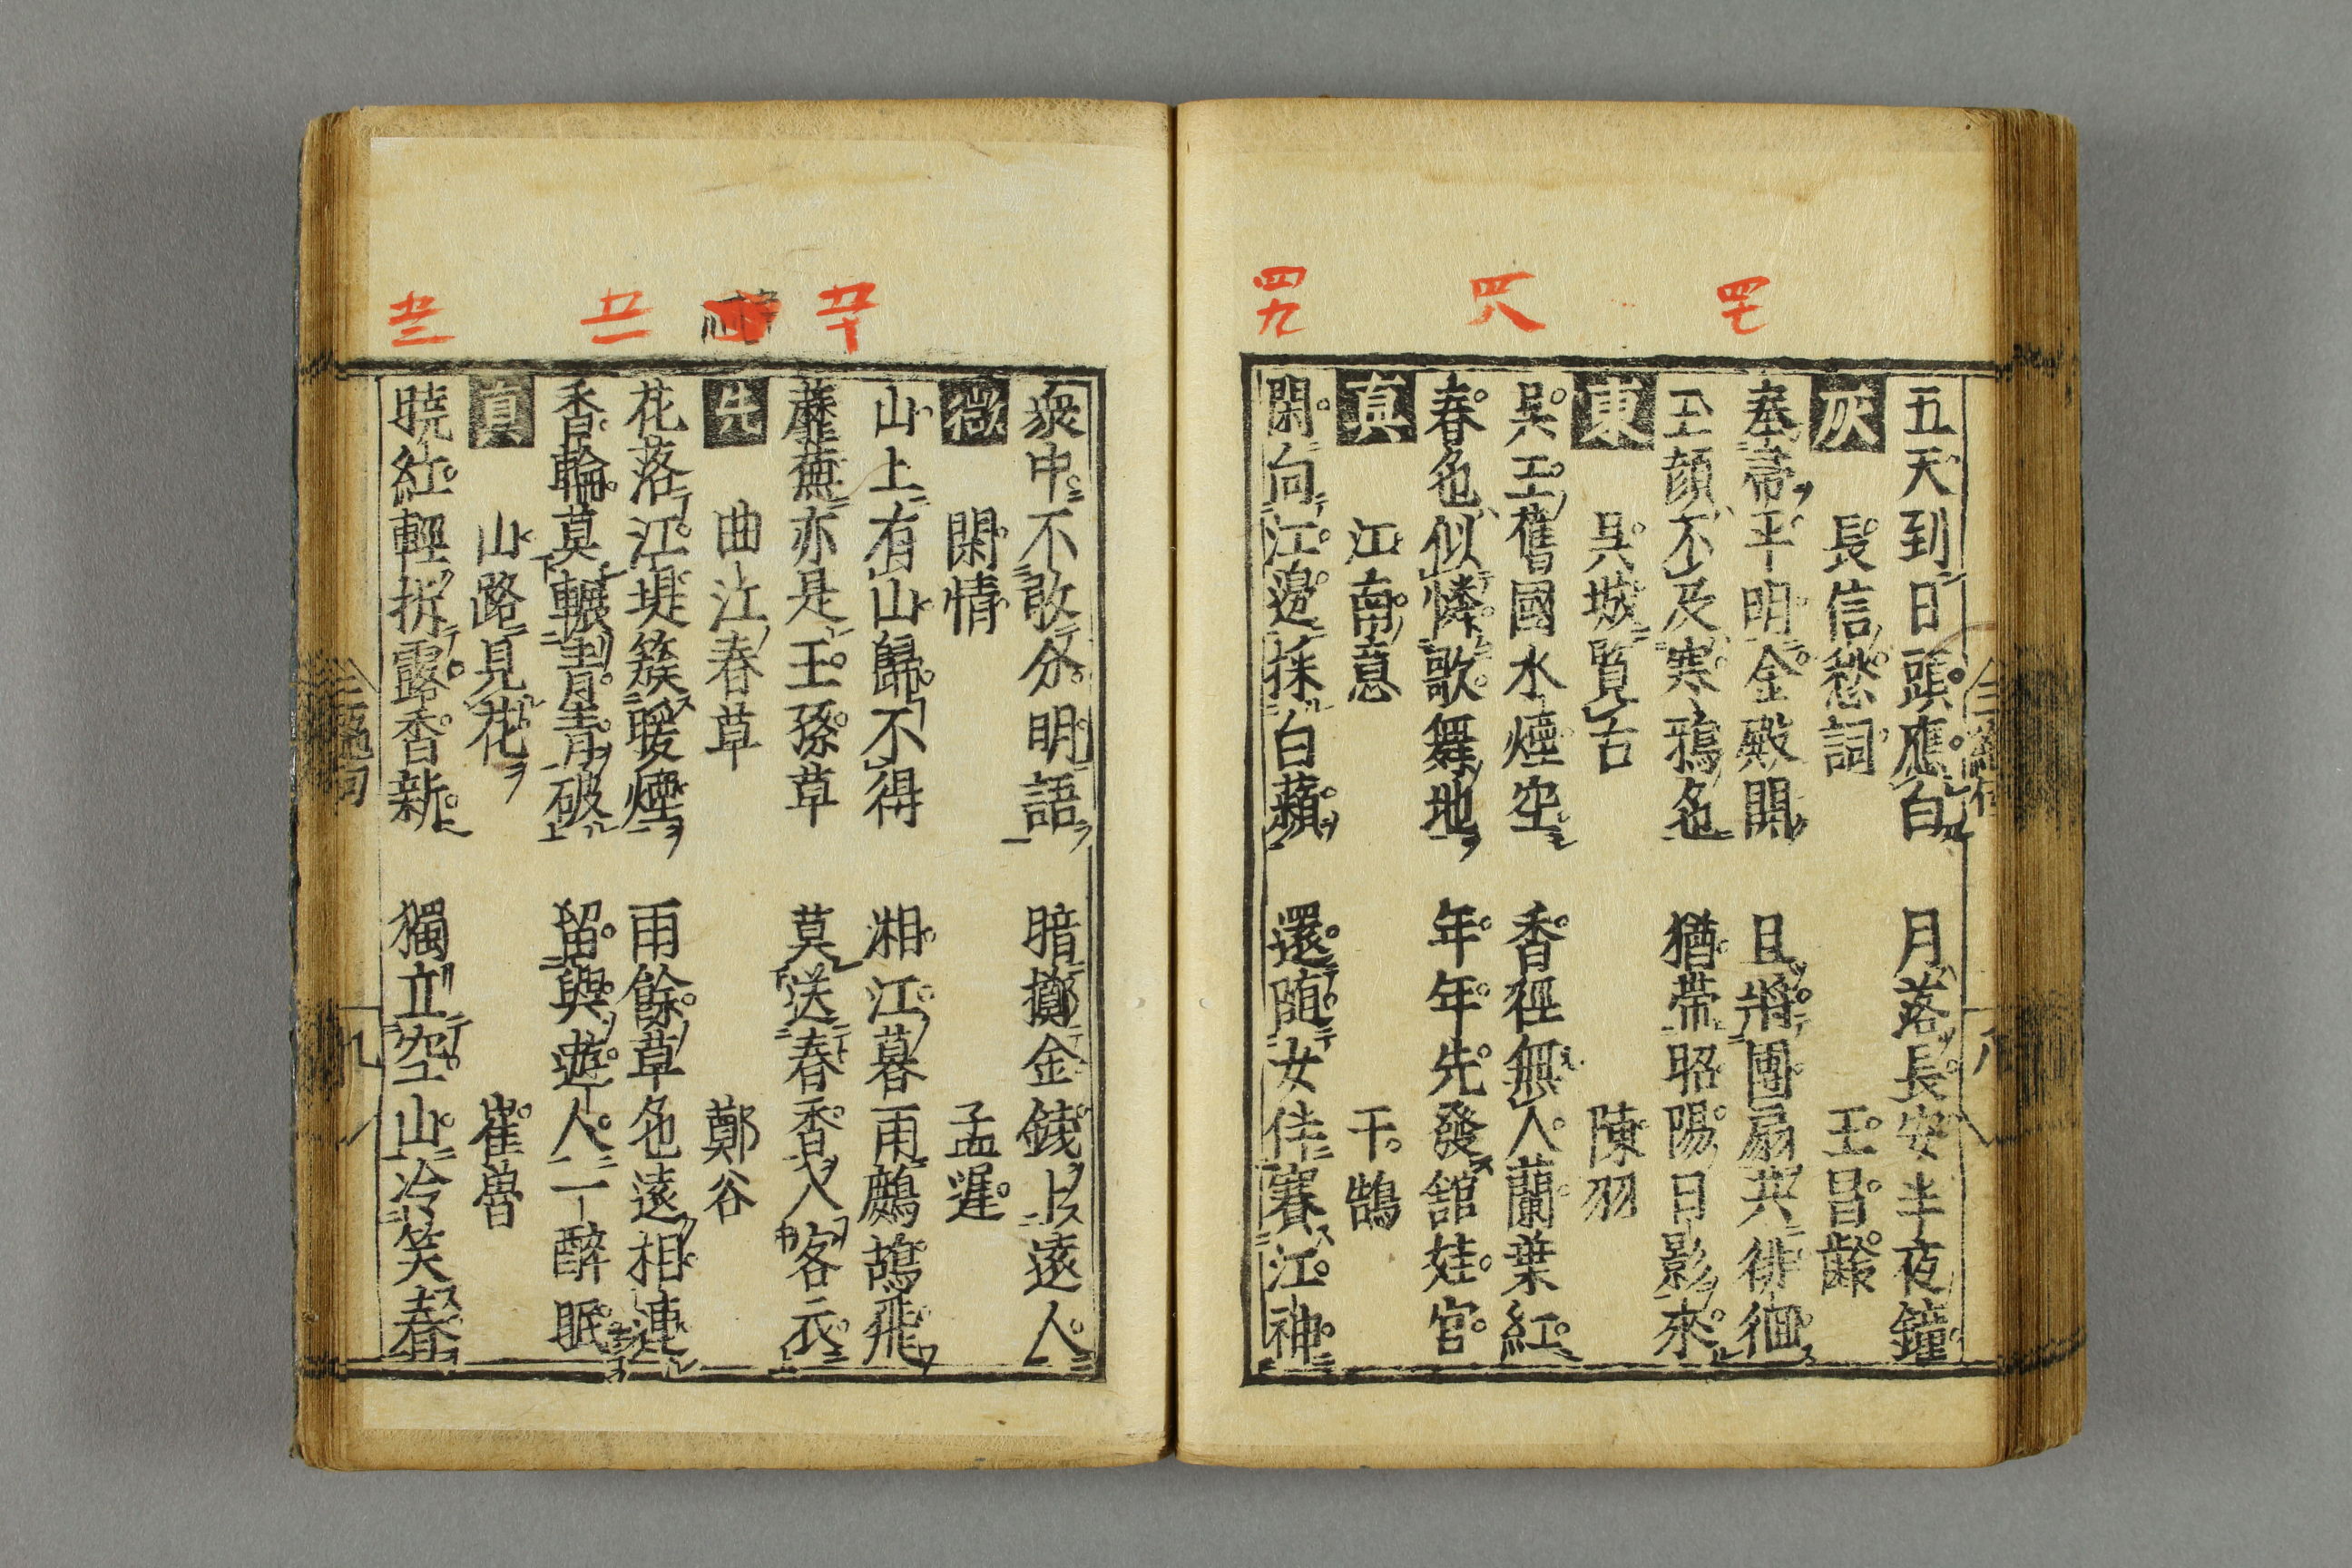 四七
四八
四九
五天到日頭應白　月落長安半夜鐘
灰　長信愁詞　王昌齡
奉帚平明金殿開　且將團扇共徘徊
玉顔不及寒鴉色　猶帶昭陽日影來
東　吳城覽古　陳羽
吳王舊國水煙空　香徑無人蘭葉紅
春色似憐歌舞地　年年先發舘娃宮
真　江南意　于鵠
閑向江邊採白蘋　還随女伴賽江神
五十
五一
五二
衆中不敢分明語　暗擲金錢卜遠人
微　閑情　孟遲
山上有山歸不得　湘江暮雨鷓鴣飛
蘼蕪亦是王孫草　莫送春香入客衣
先　曲江春草　鄭谷
花落江堤簇暖煙　雨餘草色遠相連
香輪莫輾青青破　留與遊人一醉眠
真　山路見花　崔魯
曉紅輕拆露香新　獨立空山冷笑春